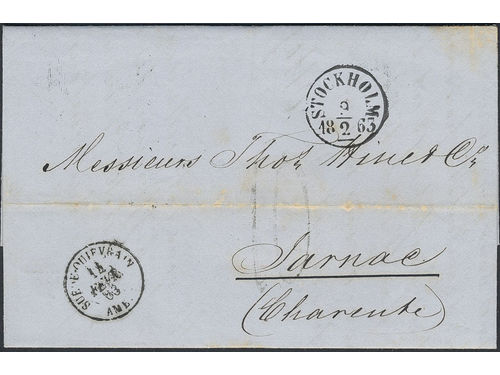 STOCKHOLM
9
18 2 63
Messieurs Thos. Hine & Co.
Jarnac
(Charente)
SUEDE-QUIEVRAIN
14
FEVR
63
AMB.